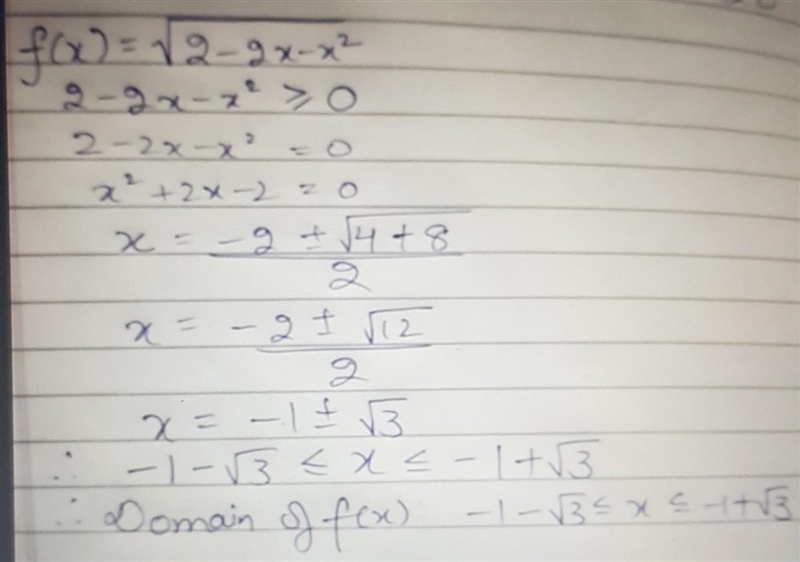 f(x) = √(2-2x-x²)
2-2x-x² ≥ 0
2-2x-x² = 0
x²+2x-2 = 0
x = (-2 ± √(4+8))/2
x = (-2 ± √12)/2
x = -1 ± √3
∴ -1-√3 ≤ x ≤ -1+√3
∴ Domain of f(x) -1-√3 ≤ x ≤ -1+√3